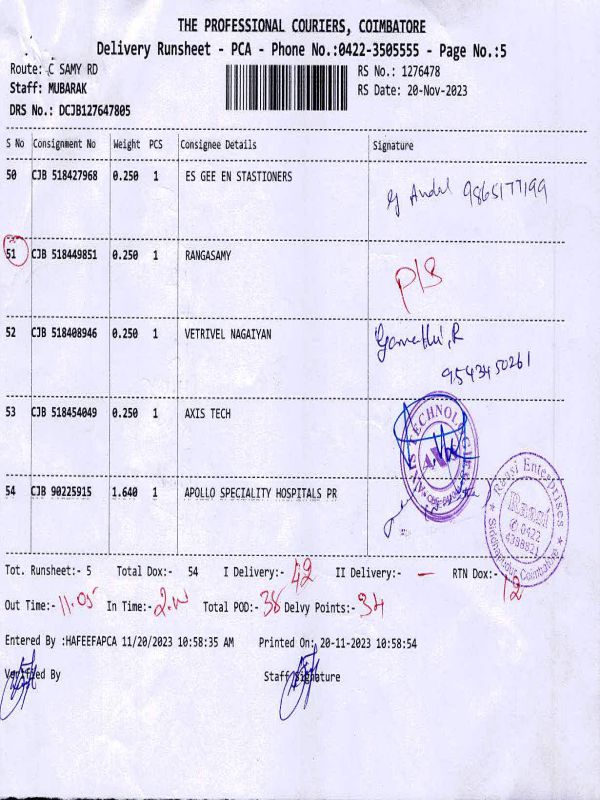 THE PROFESSIONAL COURIERS, COIMBATORE
Delivery Runsheet - PCA - Phone No.:0422-3505555 - Page No.:5
Route: C SAMY RD
RS No.: 1276478
Staff: MUBARAK
RS Date: 20-Nov-2023
DRS No.: DCJB127647805
S No Consignment No Weight PCS Consignee Details Signature
50 CJB 518427968 0.250 1 ES GEE EN STASTIONERS
9865177199
51 CJB 518449851 0.250 1 RANGASAMY
P/S
52 CJB 518408946 0.250 1 VETRIVEL NAGAIYAN
9543450261
53 CJB 518454049 0.250 1 AXIS TECH
54 CJB 90225915 1.640 1 APOLLO SPECIALITY HOSPITALS PR
Raasi Enterprises
Raasi
0422
Coimbatore
Tot. Runsheet:- 5 Total Dox:- 54 I Delivery:- 42 II Delivery:- — RTN Dox:- 12
Out Time:- 11.05 In Time:- Total POD:- 38 Delvy Points:- 34
Entered By :HAFEEFAPCA 11/20/2023 10:58:35 AM Printed On: 20-11-2023 10:58:54
Verified By Staff Signature